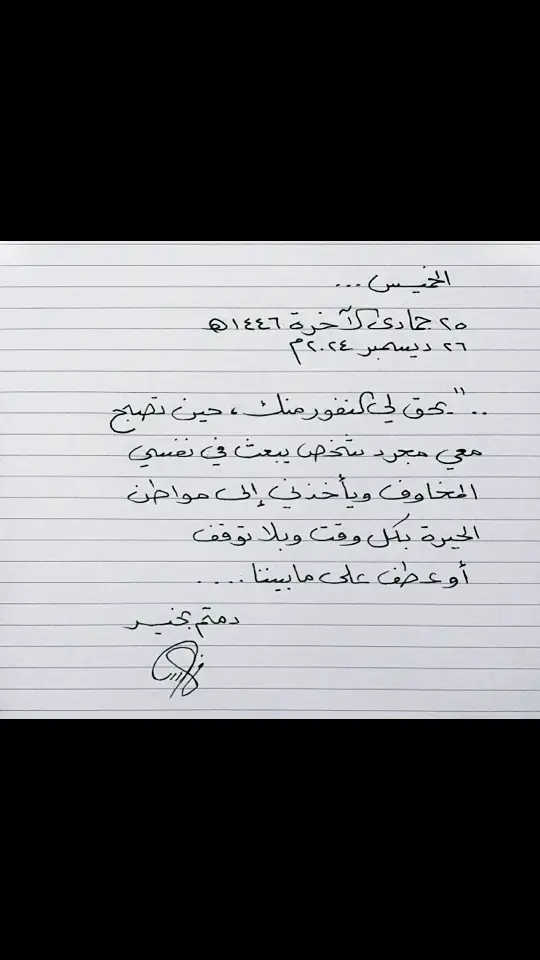 الخميس...
٢٥ جمادى الآخرة ١٤٤٦هـ
٢٦ ديسمبر ٢٠٢٤م
.."يحق لي النفور منك، حين تصبح
معي مجرد شخص يبعث في نفسي
المخاوف ويأخذني إلى مواطن
الحيرة بكل وقت وبلا توقف
أو عطف على ما بيننا....
دمتم بخير